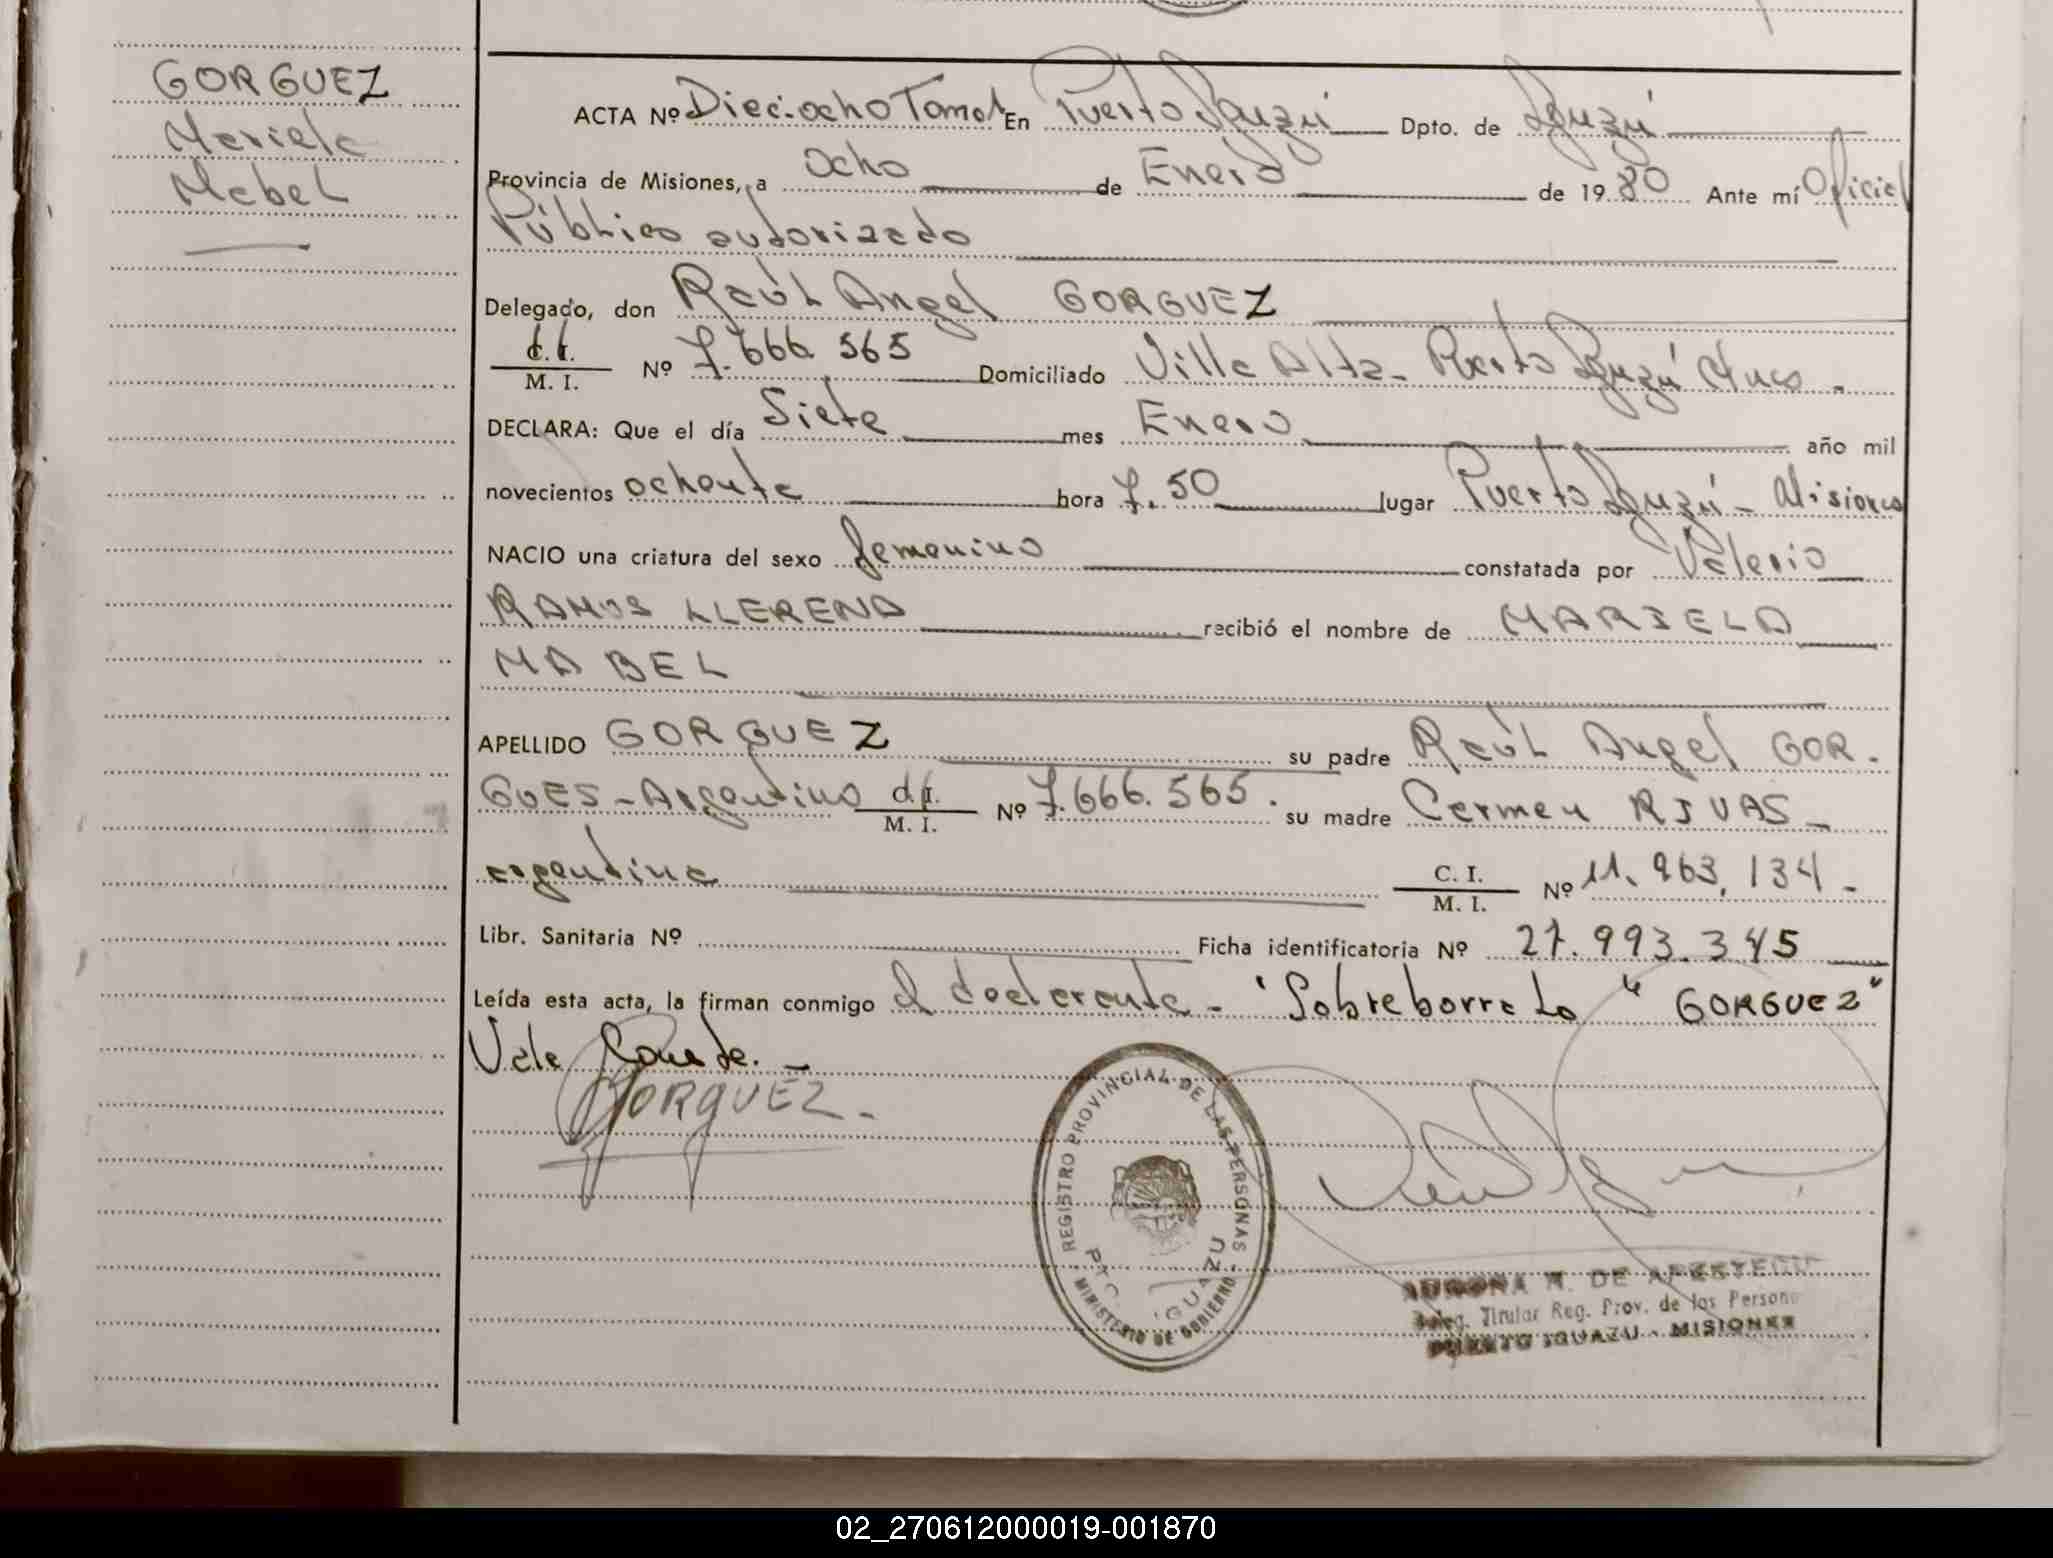 GORGUEZ
Mariela
Mabel
ACTA Nº Dieciocho Tomo I En Puerto Iguazú Dpto. de Iguazú
Provincia de Misiones, a ocho de Enero de 1980 Ante mí Oficial
Público autorizado
Delegado, don Raúl Angel GORGUEZ
C. I.
M. I. Nº 7.666.565 Domiciliado Villa Alta - Puerto Iguazú
DECLARA: Que el día Siete mes Enero año mil
novecientos ochenta hora 7.50 lugar Puerto Iguazú - Misiones
NACIO una criatura del sexo femenino constatada por Valerio
RAMOS LLERENA recibió el nombre de MARIELA
MABEL
APELLIDO GORGUEZ su padre Raúl Angel GOR-
GUES - Argentino C. I. M. I. Nº 7.666.565. su madre Carmen RIVAS -
argentina C. I. M. I. Nº 11.963.134 -
Libr. Sanitaria Nº Ficha identificatoria Nº 27.993.345
Leída esta acta, la firman conmigo el declarante - "Sobreborrado "GORGUEZ"
Vale Conste. -
GORGUEZ -
REGISTRO PROVINCIAL DE LAS PERSONAS
PTO. IGUAZU
MINISTERIO DE GOBIERNO
M. DE
Deleg. Titular Reg. Prov. de las Persona
PUERTO IGUAZU - MISIONES
02_270612000019-001870